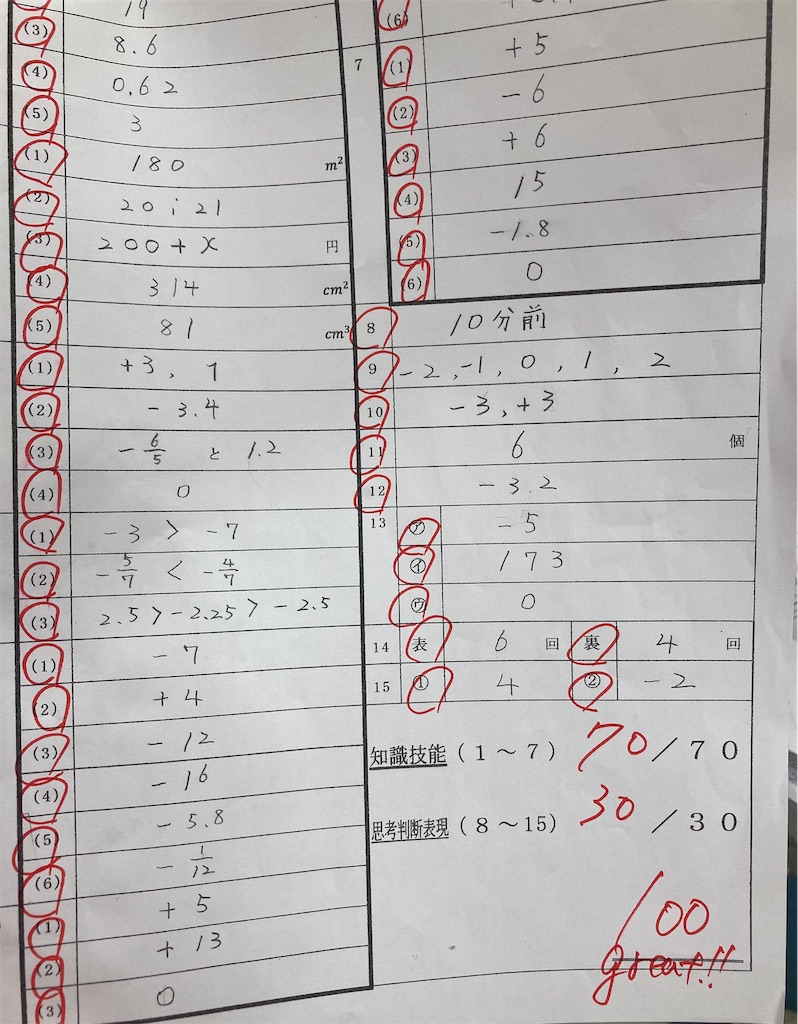 19
(3) 8.6
(4) 0.62
(5) 3
(1) 180 m²
(2) 20:21
(3) 200+x 円
(4) 314 cm²
(5) 81 cm³
(1) +3, 7
(2) -3.4
(3) -6/5 と 1.2
(4) 0
(1) -3 > -7
(2) -5/7 < -4/7
(3) 2.5 > -2.25 > -2.5
(1) -7
(2) +4
(3) -12
(4) -16
(5) -5.8
(6) -1/12
(1) +5
(2) +13
(3) 0
(6)
7 (1) +5
(2) -6
(3) +6
(4) 15
(5) -1.8
(6) 0
8 10分前
9 -2, -1, 0, 1, 2
10 -3, +3
11 6 個
12 -3.2
13 ㋐ -5
㋑ 173
㋒ 0
14 表 6 回 裏 4 回
15 ① 4 ② -2
知識技能（1～7） 70/70
思考判断表現（8～15） 30/30
100
great!!